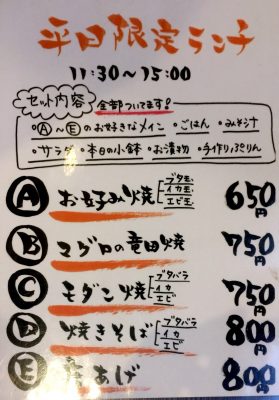 平日限定ランチ
11:30〜15:00
セット内容 全部ついてます!
・Ⓐ〜Ⓔのお好きなメイン ・ごはん ・みそ汁
・サラダ ・本日の小鉢 ・お漬物 ・手作りぷりん
Ⓐ お好み焼 ブタ玉 イカ玉 エビ玉 650
Ⓑ マグロの竜田焼 750
Ⓒ モダン焼 ブタバラ イカ エビ 750
Ⓓ 焼きそば ブタバラ イカ エビ 800
Ⓔ あげ 800